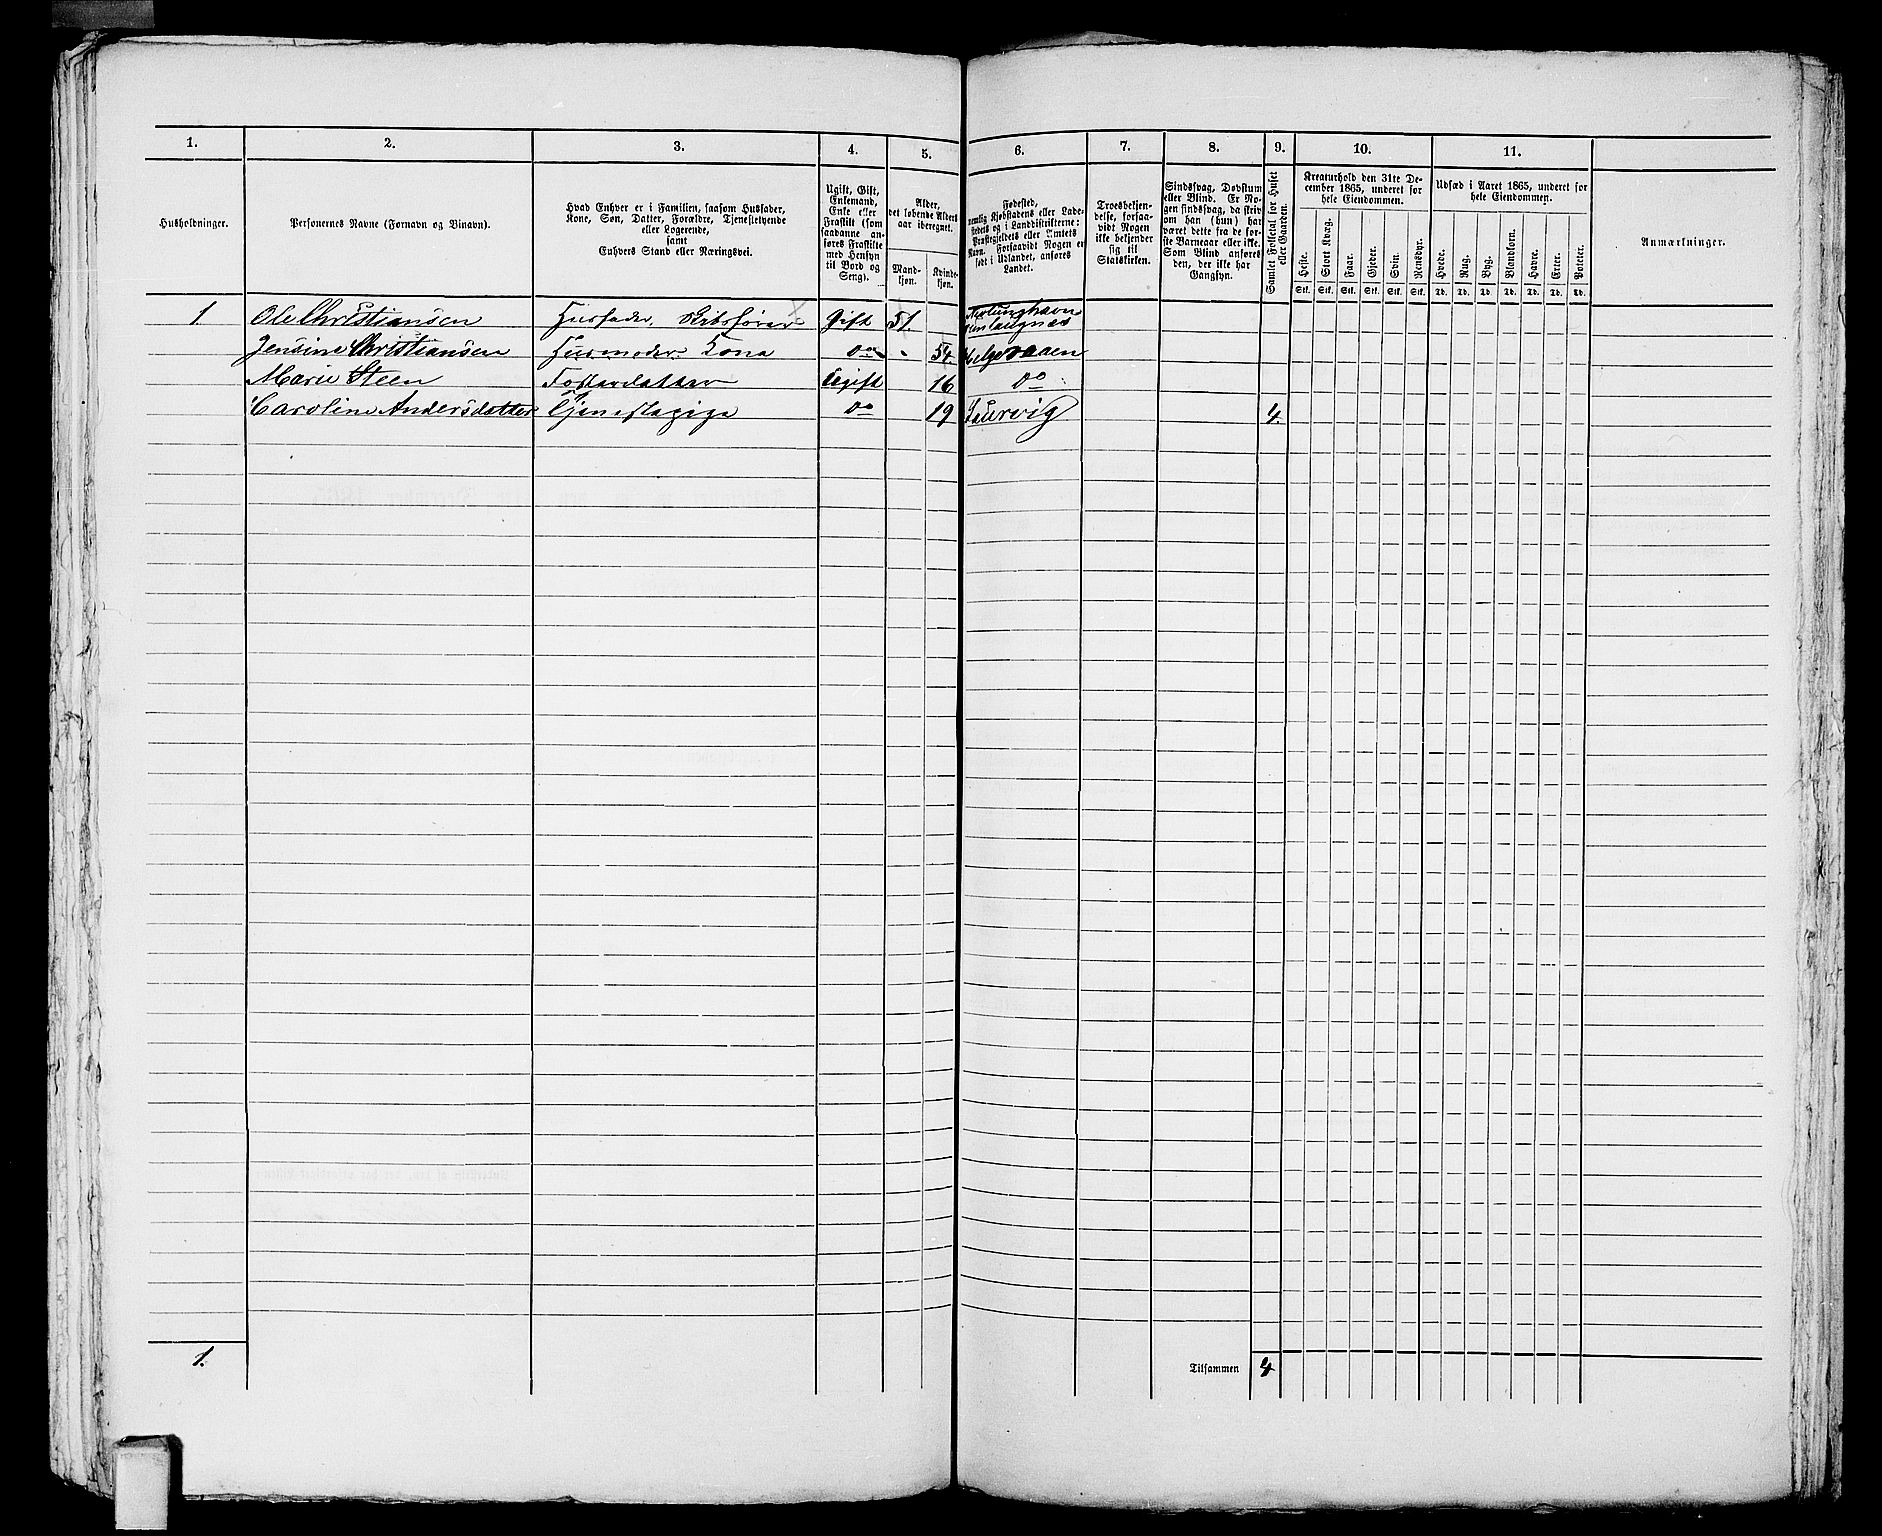 1. 2. 3. 4. 5. 6. 7. 8. 9. 10. 11.
Husholdninger.
Personernes Navne (Fornavn og Tilnavn).
Hvad Enhver er i Familien, saasom Husfader,
Kone, Søn, Datter, Forældre, Tjenestetyende
eller Logerende,
samt
Enhvers Stand eller Næringsvei.
Ugift, Gift,
Enkemand,
Enke eller
Fraskilt (som
saadanne an-
føres Fraskilte
med Hensyn
til Bord og
Seng).
Alder,
det løbende Alders-
aar iberegnet.
Mand-
kjøn.
Kvinde-
kjøn.
Fødested,
nemlig Kjøbstadens eller Lade-
stedets og i Landdistrikterne:
Præstegjeldets eller Amtets
Navn. Forsaavidt Nogen er
født i Udlandet, anføres
Landet.
Troesbekjen-
delse, forsaa-
vidt Nogen
ikke bekjender
sig til
Statskirken.
Sindssvag, Døvstum
eller Blind. Er No-
gen sindssvag, da skriv
om han (hun) har
været dette fra de før-
ste Barneaar eller ikke.
Som Blind anføres
den, der ikke har
Gangsyn.
Samlet Folketal for Huset
eller Gaarden.
Kreaturhold den 31te De-
cember 1865, underet for
hele Eiendommen.
Heste. Stort Kvæg. Faar. Gjeder. Svin. Rensdyr.
Stk. Stk. Stk. Stk. Stk. Stk.
Udsæd i Aaret 1865, underet for
hele Eiendommen.
Hvede. Rug. Byg. Blandkorn. Havre. Erter. Poteter.
Td. Td. Td. Td. Td. Td. Td.
Anmærkninger.
1. Ole Christiansen Husfader, Skibsfører Gift 51.
Jensine Christiansen Husmoder Kona do 54. Helgeraaen
Marie Steen Fosterdatter Ugift 16 do
Caroline Andersdatter Tjenestepige do 19 Laurvig 4.
1. Tilsammen 4